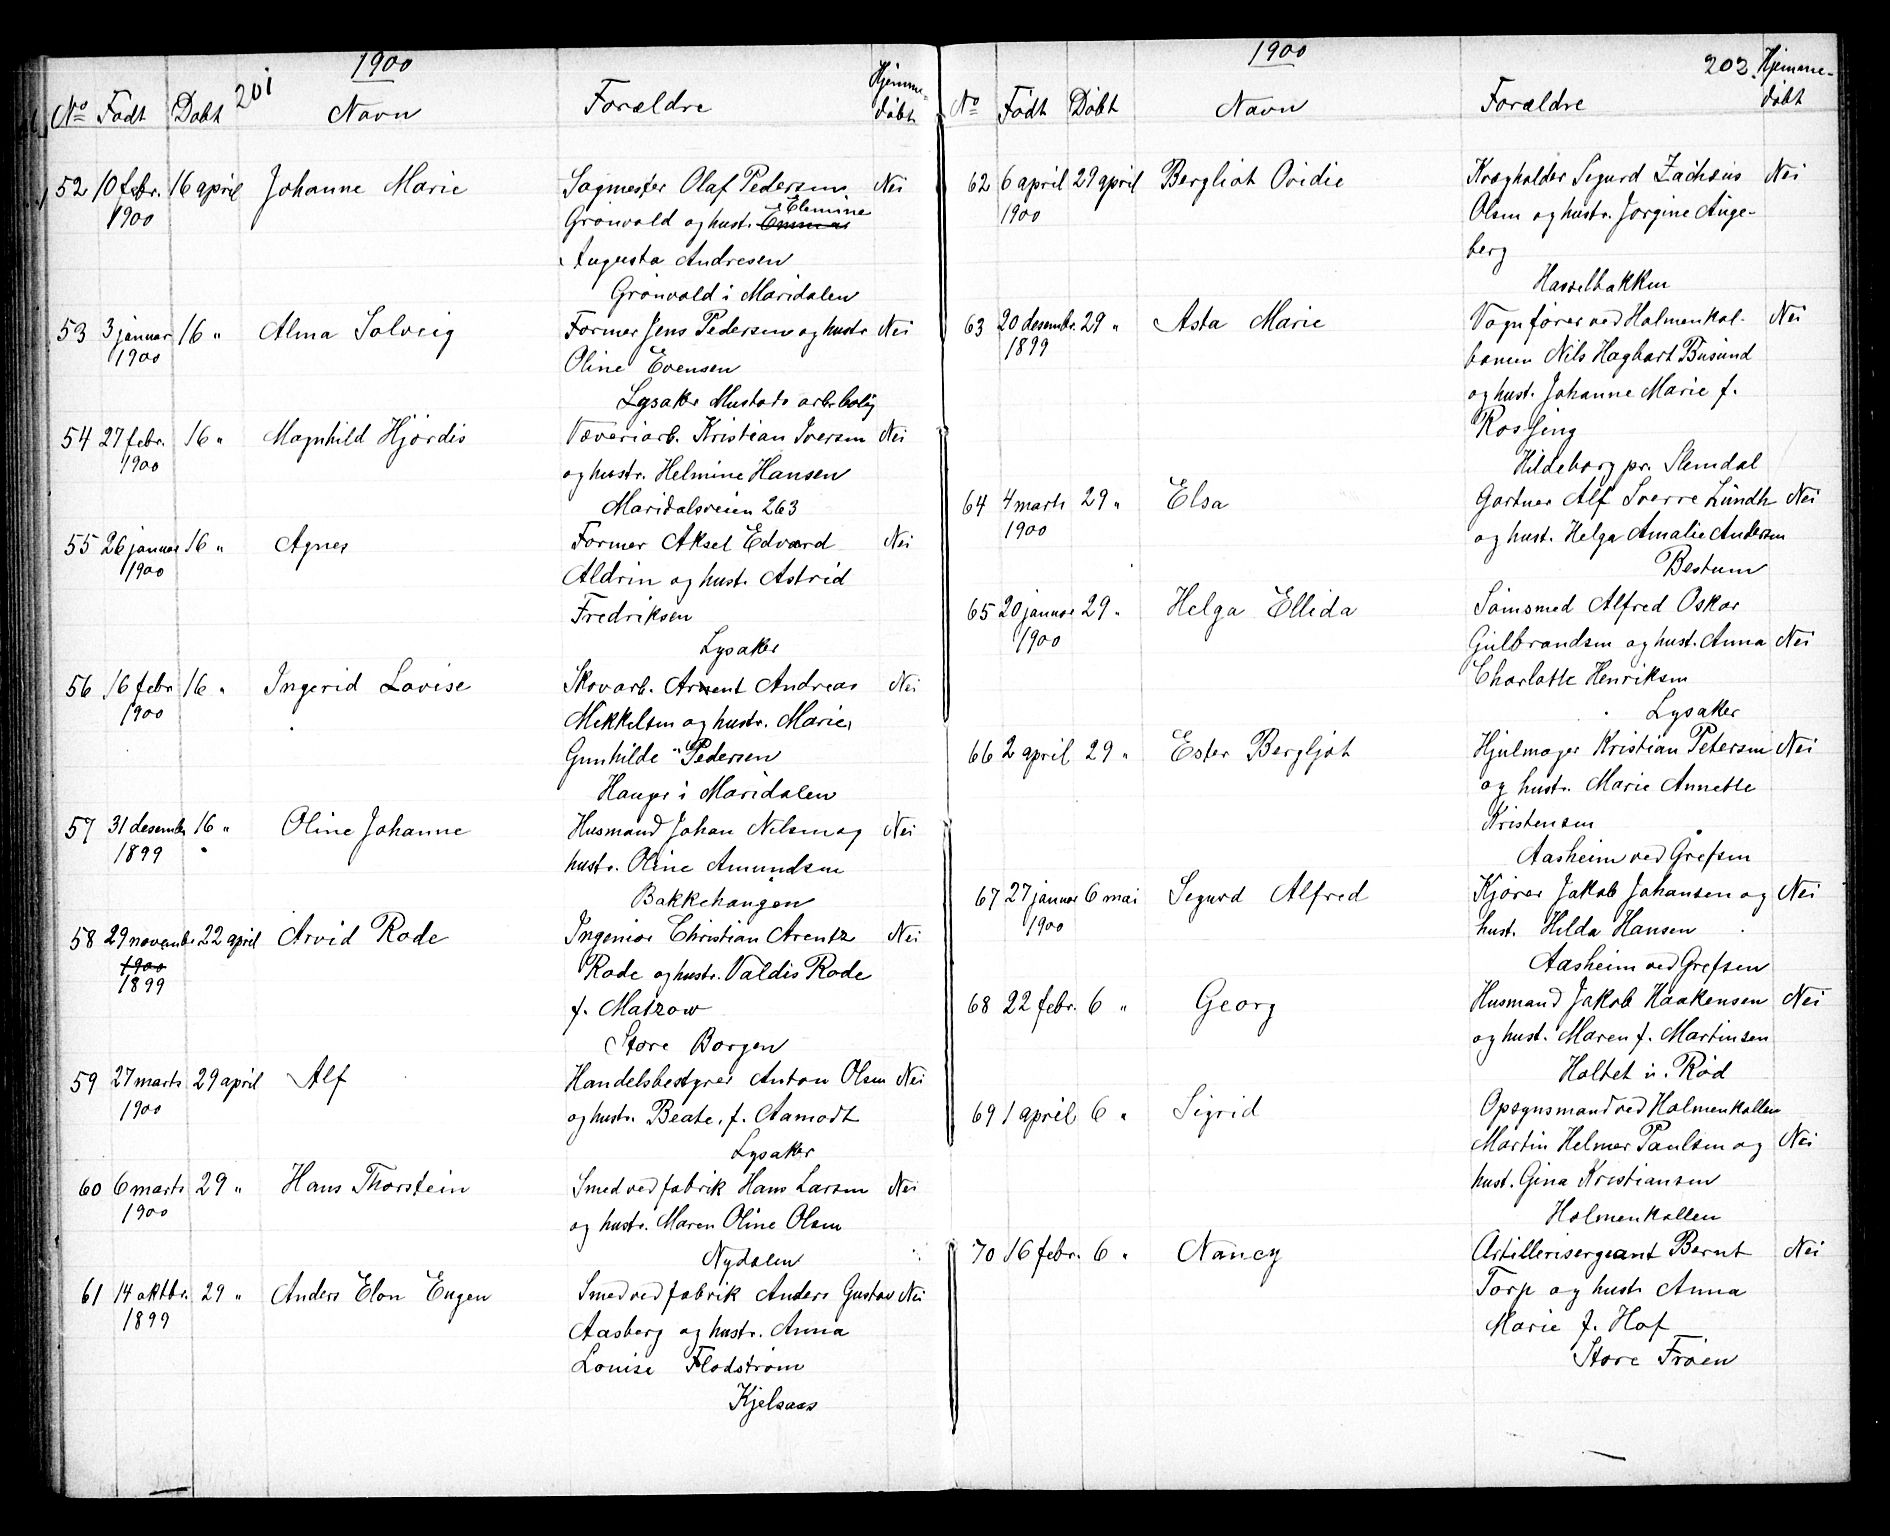 1900
201
No Født Døbt Navn Forældre Hjemmedøbt
52 10 febr. 16 april Johanne Marie Sagmester Olaf Pedersen Nei
1900 Grönvold og hust. Emma Elemine
Augusta Andresen
Grönvold i Maridalen
53 3 januar 16 " Alma Solveig Former Jens Pedersen og hustr. Nei
1900 Oline Evensen
Lysaker Mustads arb.bolig
54 27 febr. 16 " Magnhild Hjördis Væveriarb. Kristian Iversen Nei
1900 og hustr. Helmine Hansen
Maridalsveien 263
55 26 januar 16 " Agnes Former Aksel Edvard Nei
1900 Aldrin og hustr. Astrid
Fredriksen
Lysaker
56 16 febr 16 " Ingerid Lovise Skovarb. Arnent Andreas Nei
1900 Mikkelsen og hustr. Marie
Gunhilde Pedersen
Hauger i Maridalen
57 31 desembr 16 " Oline Johanne Husmand Johan Nilsen og Nei
1899 hustr. Oline Amundsen
Bakkehaugen
58 29 novembr 22 april Arvid Rode Ingeniør Christian Arentz Nei
1900 Rode og hustr. Valdis Rode
1899 f. Matzow
Store Borgen
59 27 marts 29 april Alf Handelsbestyrer Anton Olsen Nei
1900 og hustr. Beate, f. Aamodt
Lysaker
60 6 marts 29 " Hans Thorstein Smed ved fabrik Hans Larsen Nei
1900 og hustr. Maren Oline Olsen
Nydalen
61 14 oktbr. 29 " Anders Elon Eugen Smed ved fabrik Anders Gustav Nei
1899 Aasberg og hustr. Anna
Louise Flodström
Kjelsaas
1900
202.
No Födt Döbt Navn Forældre Hjemmedöbt
62 6 april 29 april Bergliot Ovidie Krøgholder Sigurd Zachæus Nei
1900 Olsen og hustr. Jorgine Auge-
berg
Hasselbakken
63 20 desembr. 29 " Asta Marie Vognfører ved Holmenkol- Nei
1899 banen Nils Hagbart Busund
og hust. Johanne Marie f.
Rossing
Hildeborg pr. Slemdal
64 4 marts 29 " Elsa Gartner Alf Sverre Lundh Nei
1900 og hust. Helga Amalie Andersen
Bestum
65 20 januar 29 " Helga Ellida Sömsmed Alfred Oskar
1900 Gulbrandsen og hust. Anna Nei
Charlotte Henriksen
Lysaker
66 2 april 29 " Ester Bergljot Hjulmager Kristian Petersen Nei
og hustr. Marie Annette
Kristensen
Aasheim ved Grefsen
67 27 januar 6 mai Sigurd Alfred Kjörer Jakob Johansen og Nei
1900 hust. Hilda Hansen
Aasheim ved Grefsen
68 22 febr. 6 " Georg Husmand Jakob Haakensen Nei
og hust. Maren f. Martinsen
Holtet u. Röd
69 1 april 6 " Sigrid Opsynsmand ved Holmenkollen
Martin Helmer Paulsen og Nei
hust. Gina Kristiansen
Holmenkollen
70 16 febr. 6 " Nancy Artillerisergeant Bernt Nei
Torp og hustr Anna
Marie f. Hof
Store Fröen